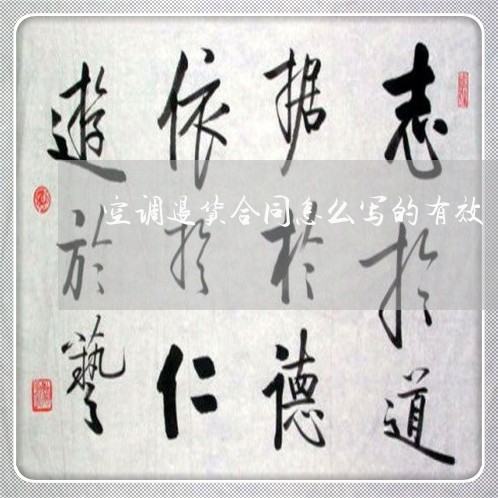 志於道
据於德
依於仁
遊於藝
空调退货合同怎么写的有效